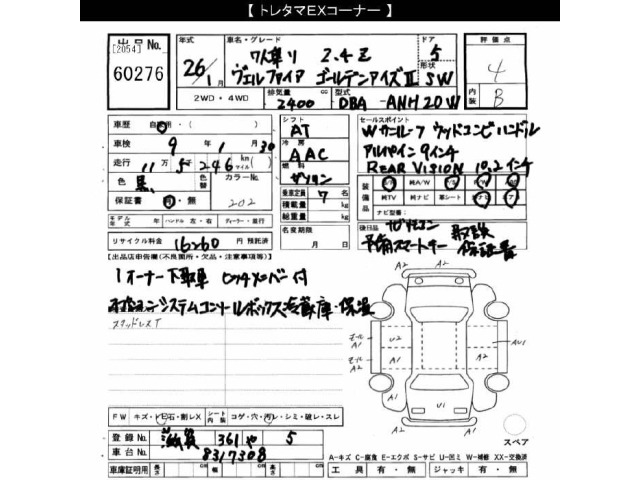 【 トレタマEXコーナー 】
出品No.
[2054]
60276
年式
26年
1月
車名・グレード
7人乗り 2.4Z
ヴェルファイア ゴールデンアイズⅡ
ドア
5
形状
SW
評価点
4
内装
B
2WD・4WD
排気量
2400
cc
型式
DBA-ANH20W
車歴
自家用・( )
車検
9年1月30
走行
11万5246km
マイル
色
黒
色替
カラーNo.
202
保証書
有・無
モデル年式
年
ハンドル 左・右
ディーラー・並行
リサイクル料金
16260円 預託済
シフト
AT
冷房
AAC
燃料
ガソリン
乗車定員
7
名
積載量
kg
総重量
kg
名変期限
月 日
セールスポイント
Wサンルーフ ウッドコンビハンドル
アルパイン9インチ
REAR VISION 10.2インチ
装備品
純TV
純ナビ
革シート
ナビ型番:
後日品
ナビリモコン
予備スマートキー
取説
保証書
【出品店申告欄(不良箇所・欠品・注意事項等)】
1オーナー下取車 ロックメロバー付
システムコンソールボックス冷蔵庫・保温
スタッドレスT
A2
A1
モール
A1
U2
モール
A2
A1
A2
AU1
A1
U1
A1
スペア
FW
キズ・ドE・石・割レX
シート内装
コゲ・穴・汚レ・シミ・破レ・スレ
登録No.
滋賀 361 や 5
車台No.
8317308
A-キズ C-腐食 E-エクボ S-サビ U-凹ミ W-補修 XX-交換済
車庫証明用
長さ
cm
幅
cm
高さ
cm
工具
有・無
ジャッキ
有・無